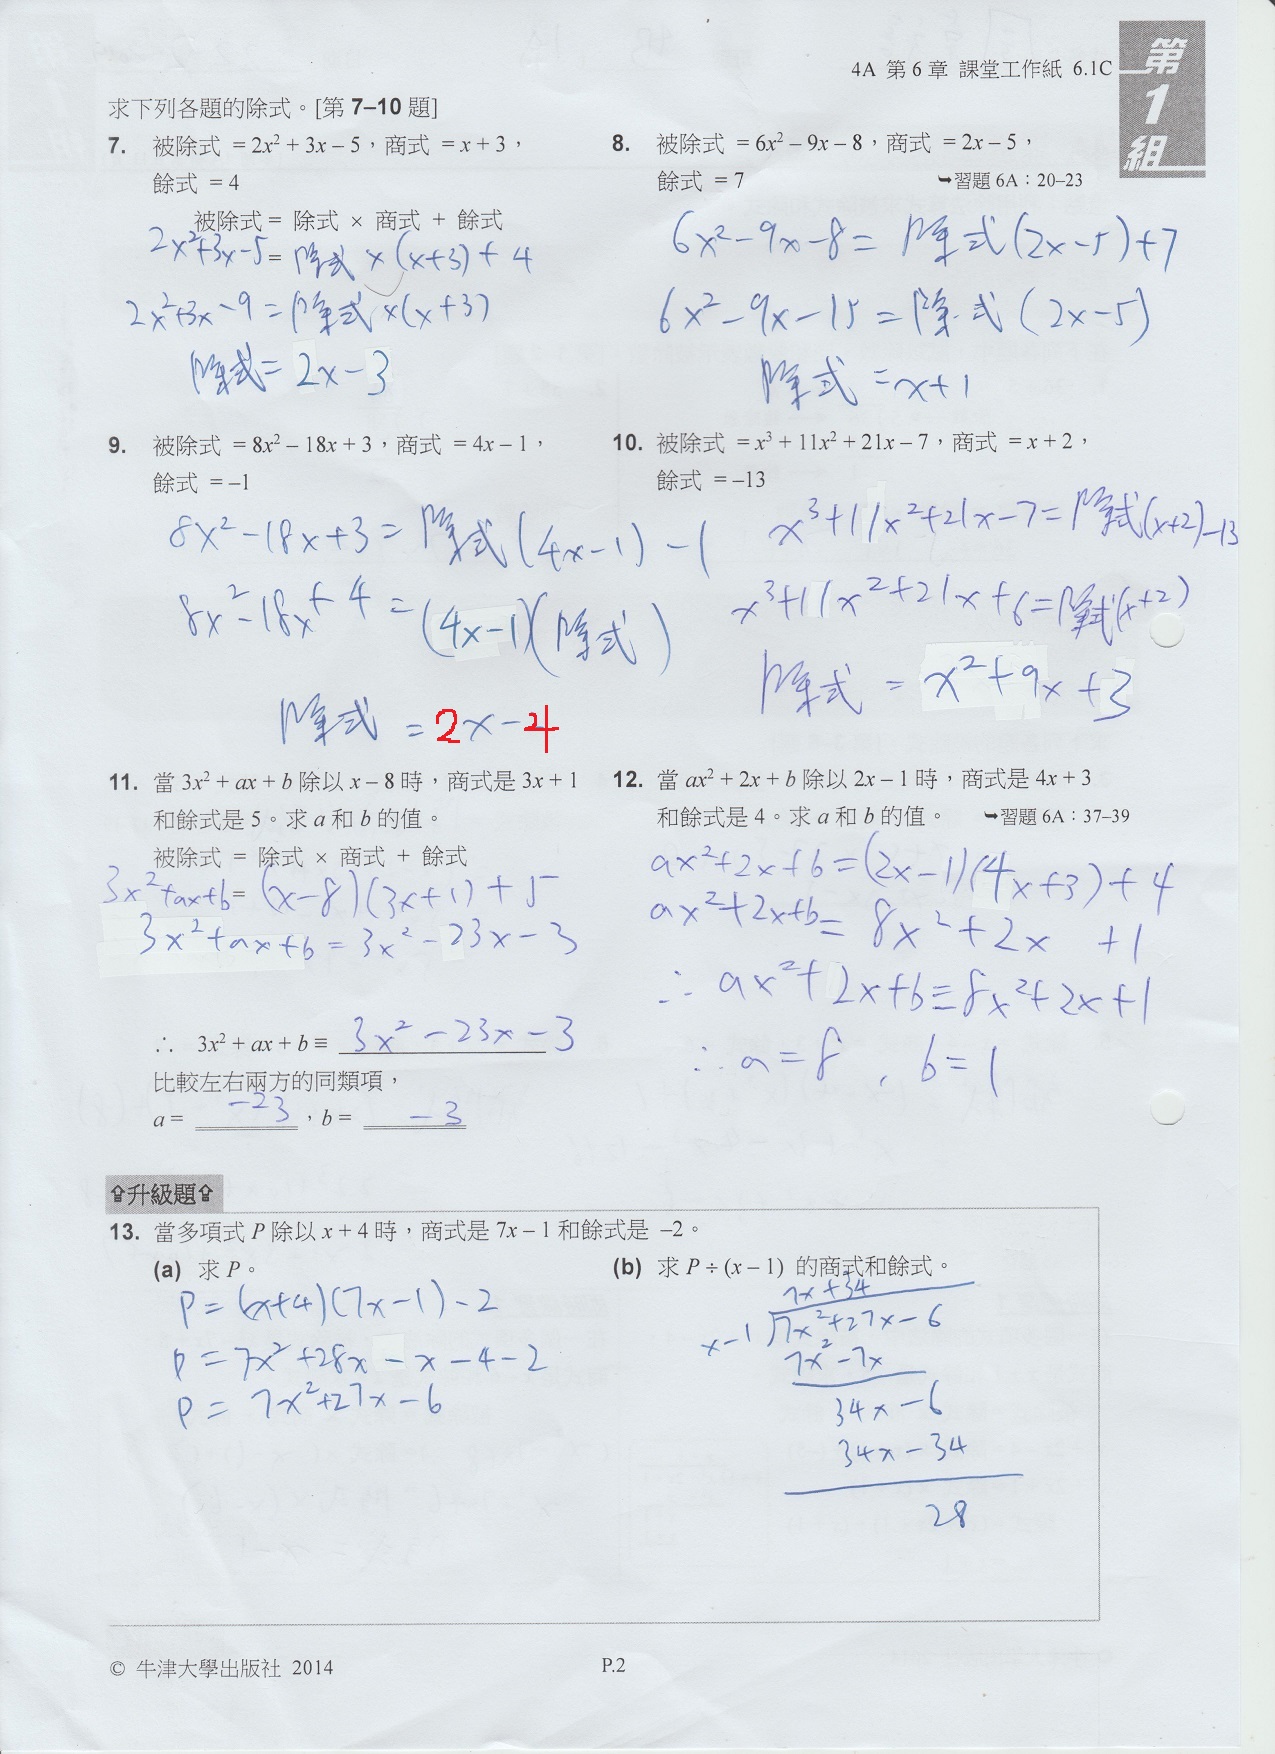 4A 第 6 章 課堂工作紙 6.1C
第
1
組
求下列各題的除式。[第 7–10 題]
7. 被除式 = 2x² + 3x – 5，商式 = x + 3，
餘式 = 4
被除式 = 除式 × 商式 + 餘式
2x²+3x-5 = 除式 × (x+3) + 4
2x²+3x-9 = 除式 × (x+3)
除式 = 2x-3
8. 被除式 = 6x² – 9x – 8，商式 = 2x – 5，
餘式 = 7 ➥習題 6A：20–23
6x²-9x-8 = 除式(2x-5)+7
6x²-9x-15 = 除式(2x-5)
除式 = x+1
9. 被除式 = 8x² – 18x + 3，商式 = 4x – 1，
餘式 = –1
8x²-18x+3 = 除式(4x-1)-1
8x²-18x+4 = (4x-1)(除式)
除式 = 2x-4
10. 被除式 = x³ + 11x² + 21x – 7，商式 = x + 2，
餘式 = –13
x³+11x²+21x-7 = 除式(x+2)-13
x³+11x²+21x+6 = 除式(x+2)
除式 = x²+9x+3
11. 當 3x² + ax + b 除以 x – 8 時，商式是 3x + 1
和餘式是 5。求 a 和 b 的值。
被除式 = 除式 × 商式 + 餘式
3x²+ax+b = (x-8)(3x+1)+5
3x²+ax+b = 3x²-23x-3
∴ 3x² + ax + b ≡ 3x²-23x-3
比較左右兩方的同類項，
a = -23 ，b = -3
12. 當 ax² + 2x + b 除以 2x – 1 時，商式是 4x + 3
和餘式是 4。求 a 和 b 的值。 ➥習題 6A：37–39
ax²+2x+b = (2x-1)(4x+3)+4
ax²+2x+b = 8x²+2x +1
∴ ax²+2x+b ≡ 8x²+2x+1
∴ a = 8 , b = 1
⇧升級題⇧
13. 當多項式 P 除以 x + 4 時，商式是 7x – 1 和餘式是 –2。
(a) 求 P。
P = (x+4)(7x-1)-2
P = 7x²+28x-x-4-2
P = 7x²+27x-6
(b) 求 P ÷ (x – 1) 的商式和餘式。
7x+34
x-1 ) 7x²+27x-6
7x²-7x
34x-6
34x-34
28
© 牛津大學出版社 2014
P.2